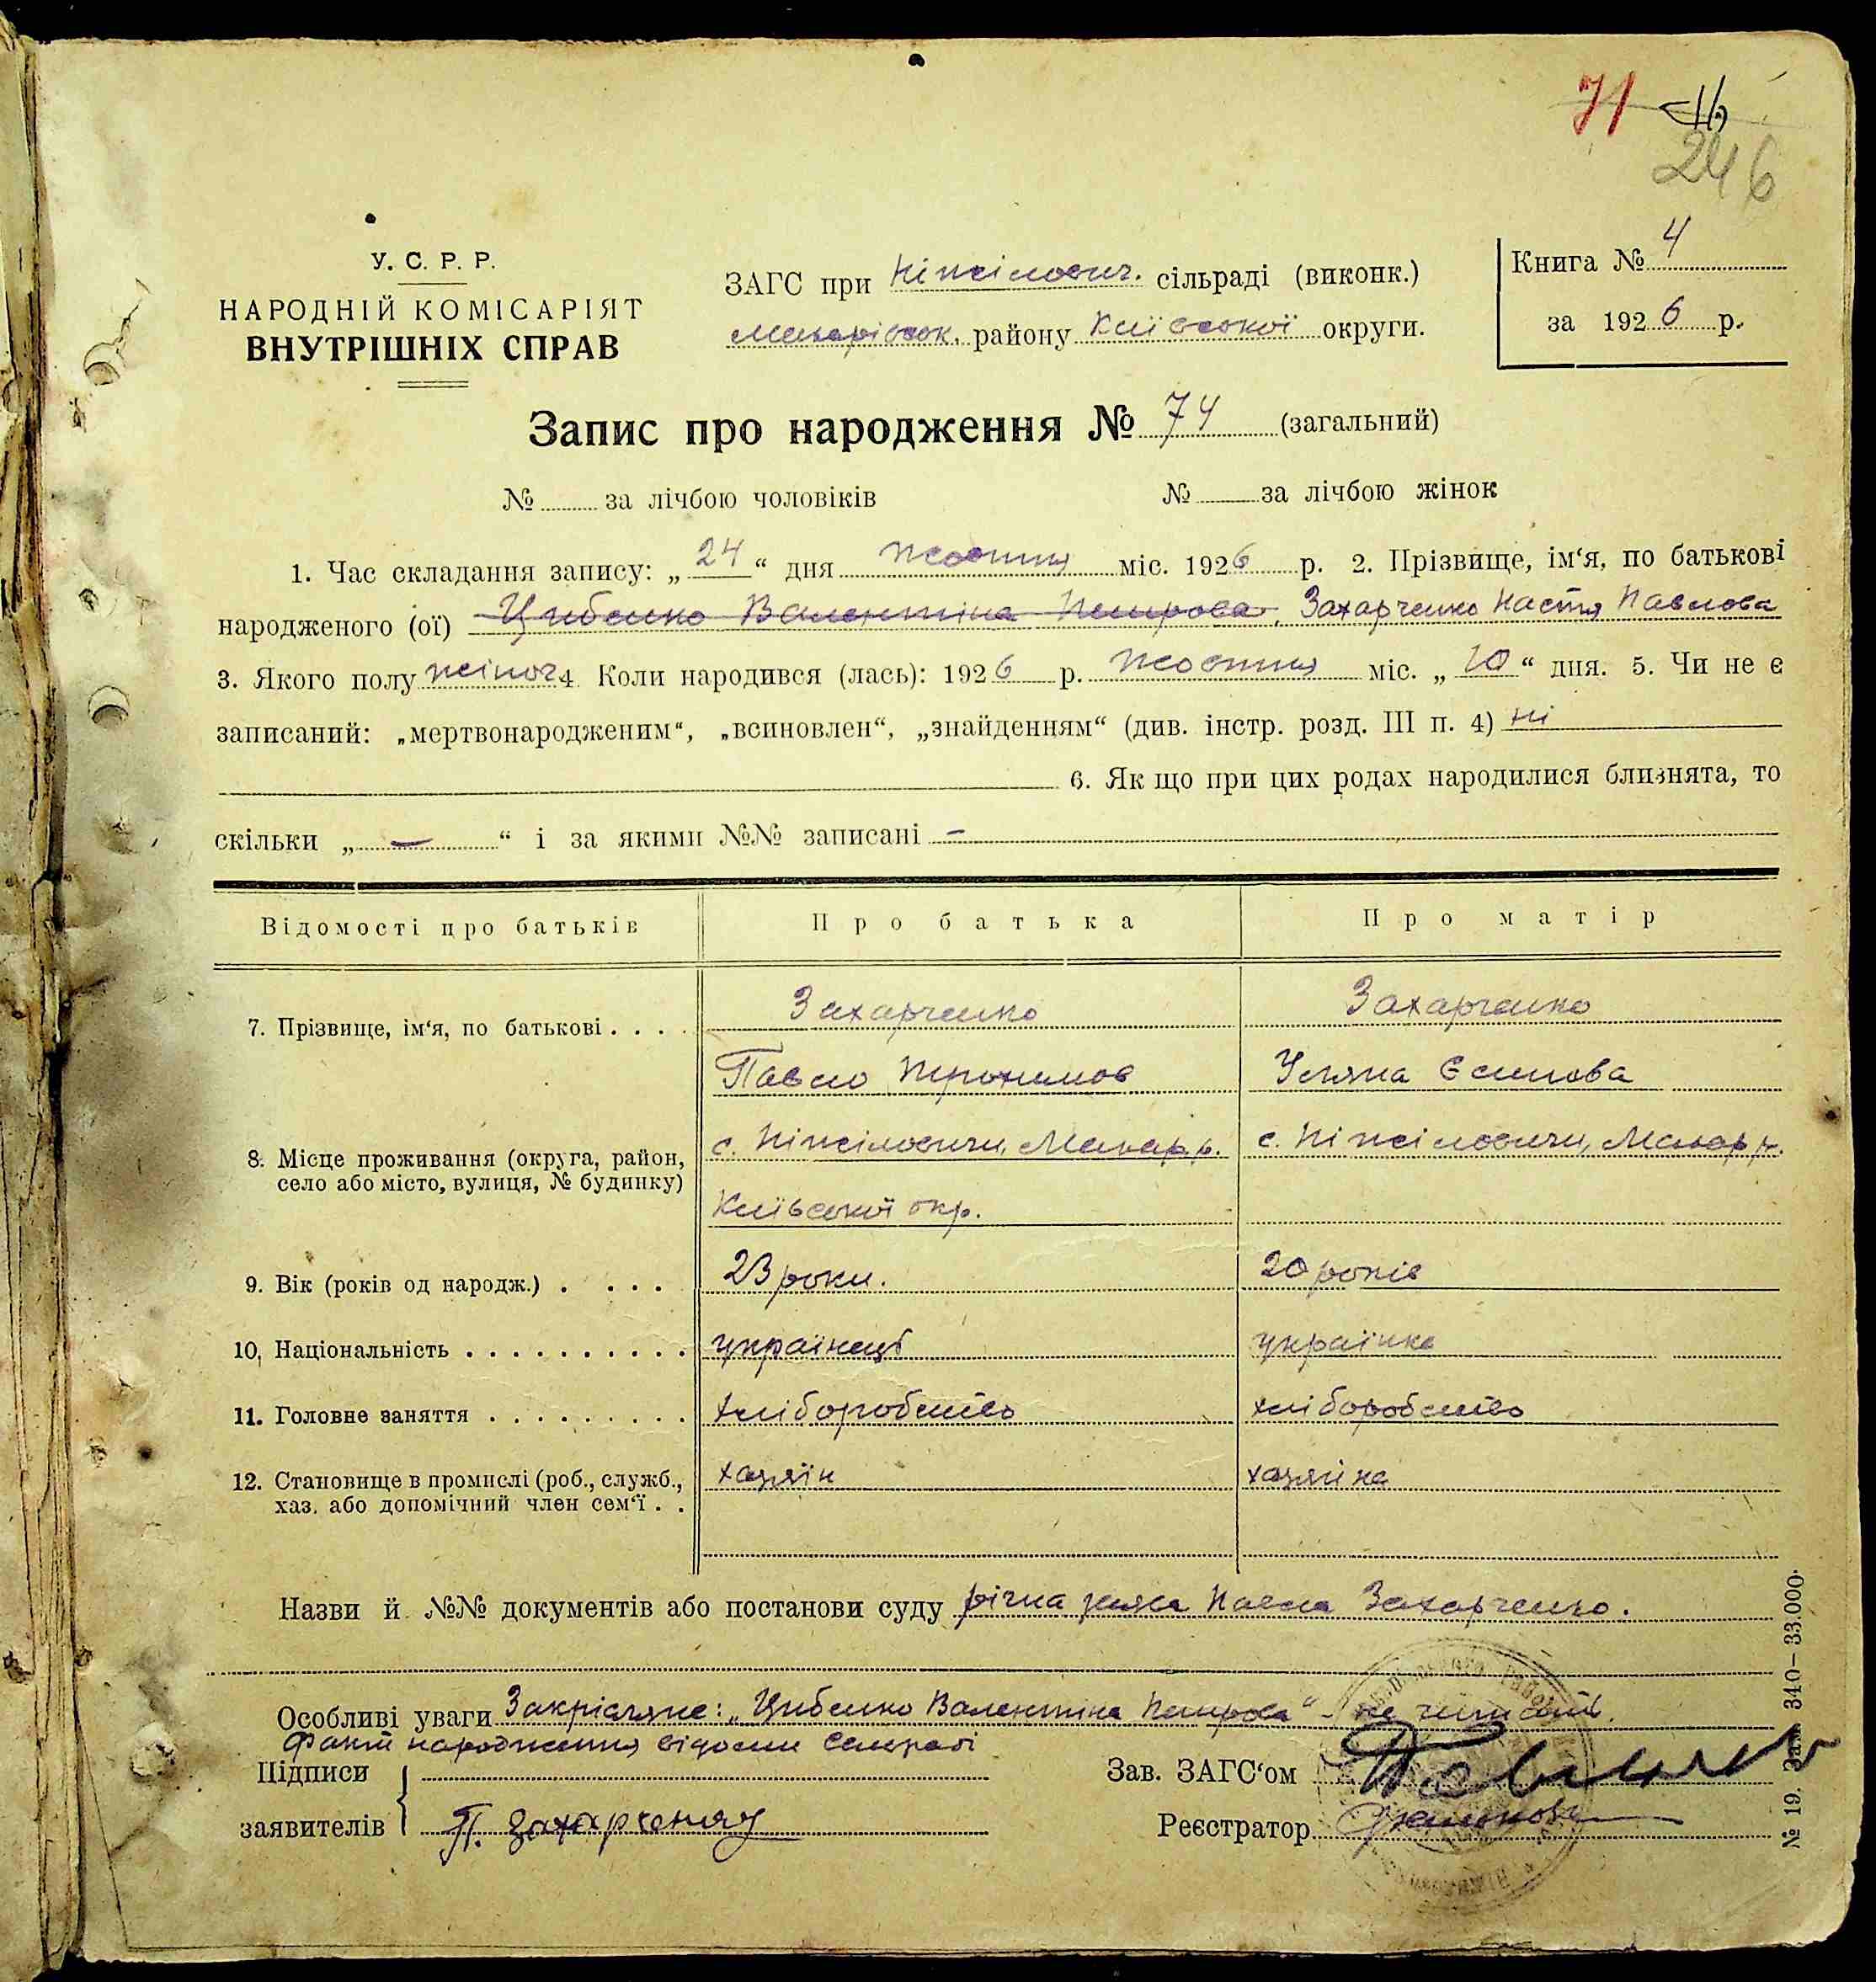 71
246
У. С. Р. Р.
НАРОДНІЙ КОМІСАРІЯТ
ВНУТРІШНІХ СПРАВ
ЗАГС при Ніжілович. сільраді (виконк.)
Макарівськ. району Київської округи.
Книга № 4
за 1926 р.
Запис про народження № 74 (загальний)
№ за лічбою чоловіків № за лічбою жінок
1. Час складання запису: „24“ дня жовтня міс. 1926 р. 2. Прізвище, ім‘я, по батькові
народженого (ої) Цибенко Валентіна Петрова, Захарченко Настя Павлова
3. Якого полу жіноч. 4 Коли народився (лась): 1926 р. жовтня міс. „10“ дня. 5. Чи не є
записаний: „мертвонародженим“, „всиновлен“, „знайденням“ (див. інстр. розд. III п. 4) ні
6. Як що при цих родах народилися близнята, то
скільки „ – “ і за якими №№ записані –
Відомості про батьків Про батька Про матір
7. Прізвище, ім‘я, по батькові . . . . Захарченко Захарченко
Павло Трохимов Уляна Єсипова
8. Місце проживання (округа, район, с. Ніжіловичи, Макар. р. с. Ніжіловичи, Макар. р.
село або місто, вулиця, № будинку)
Київської окр.
9. Вік (років од народж.) . . . . 23 роки. 20 років
10, Національність . . . . . . . . . . українець українка
11. Головне заняття . . . . . . . . . хліборобство хліборобство
12. Становище в промислі (роб., служб., хазяїн хазяїна
хаз. або допомічний член сем‘ї . .
Назви й №№ документів або постанови суду річна заява Павла Захарченко.
Особливі уваги Закріслене: „Цибенко Валентіна Петрова“ – не читать.
Факт народження відомий Сельраді
Підписи
заявителів П. Захарченко
Зав. ЗАГС‘ом
Реєстратор
№ 19. Зам. 340–33.000.